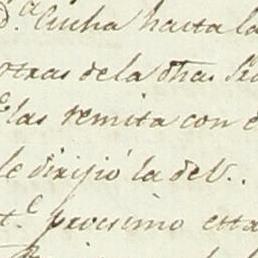 Cucha hasta la
otras dela dha.
las remita con
le dirijió la de V.
procsimo esta